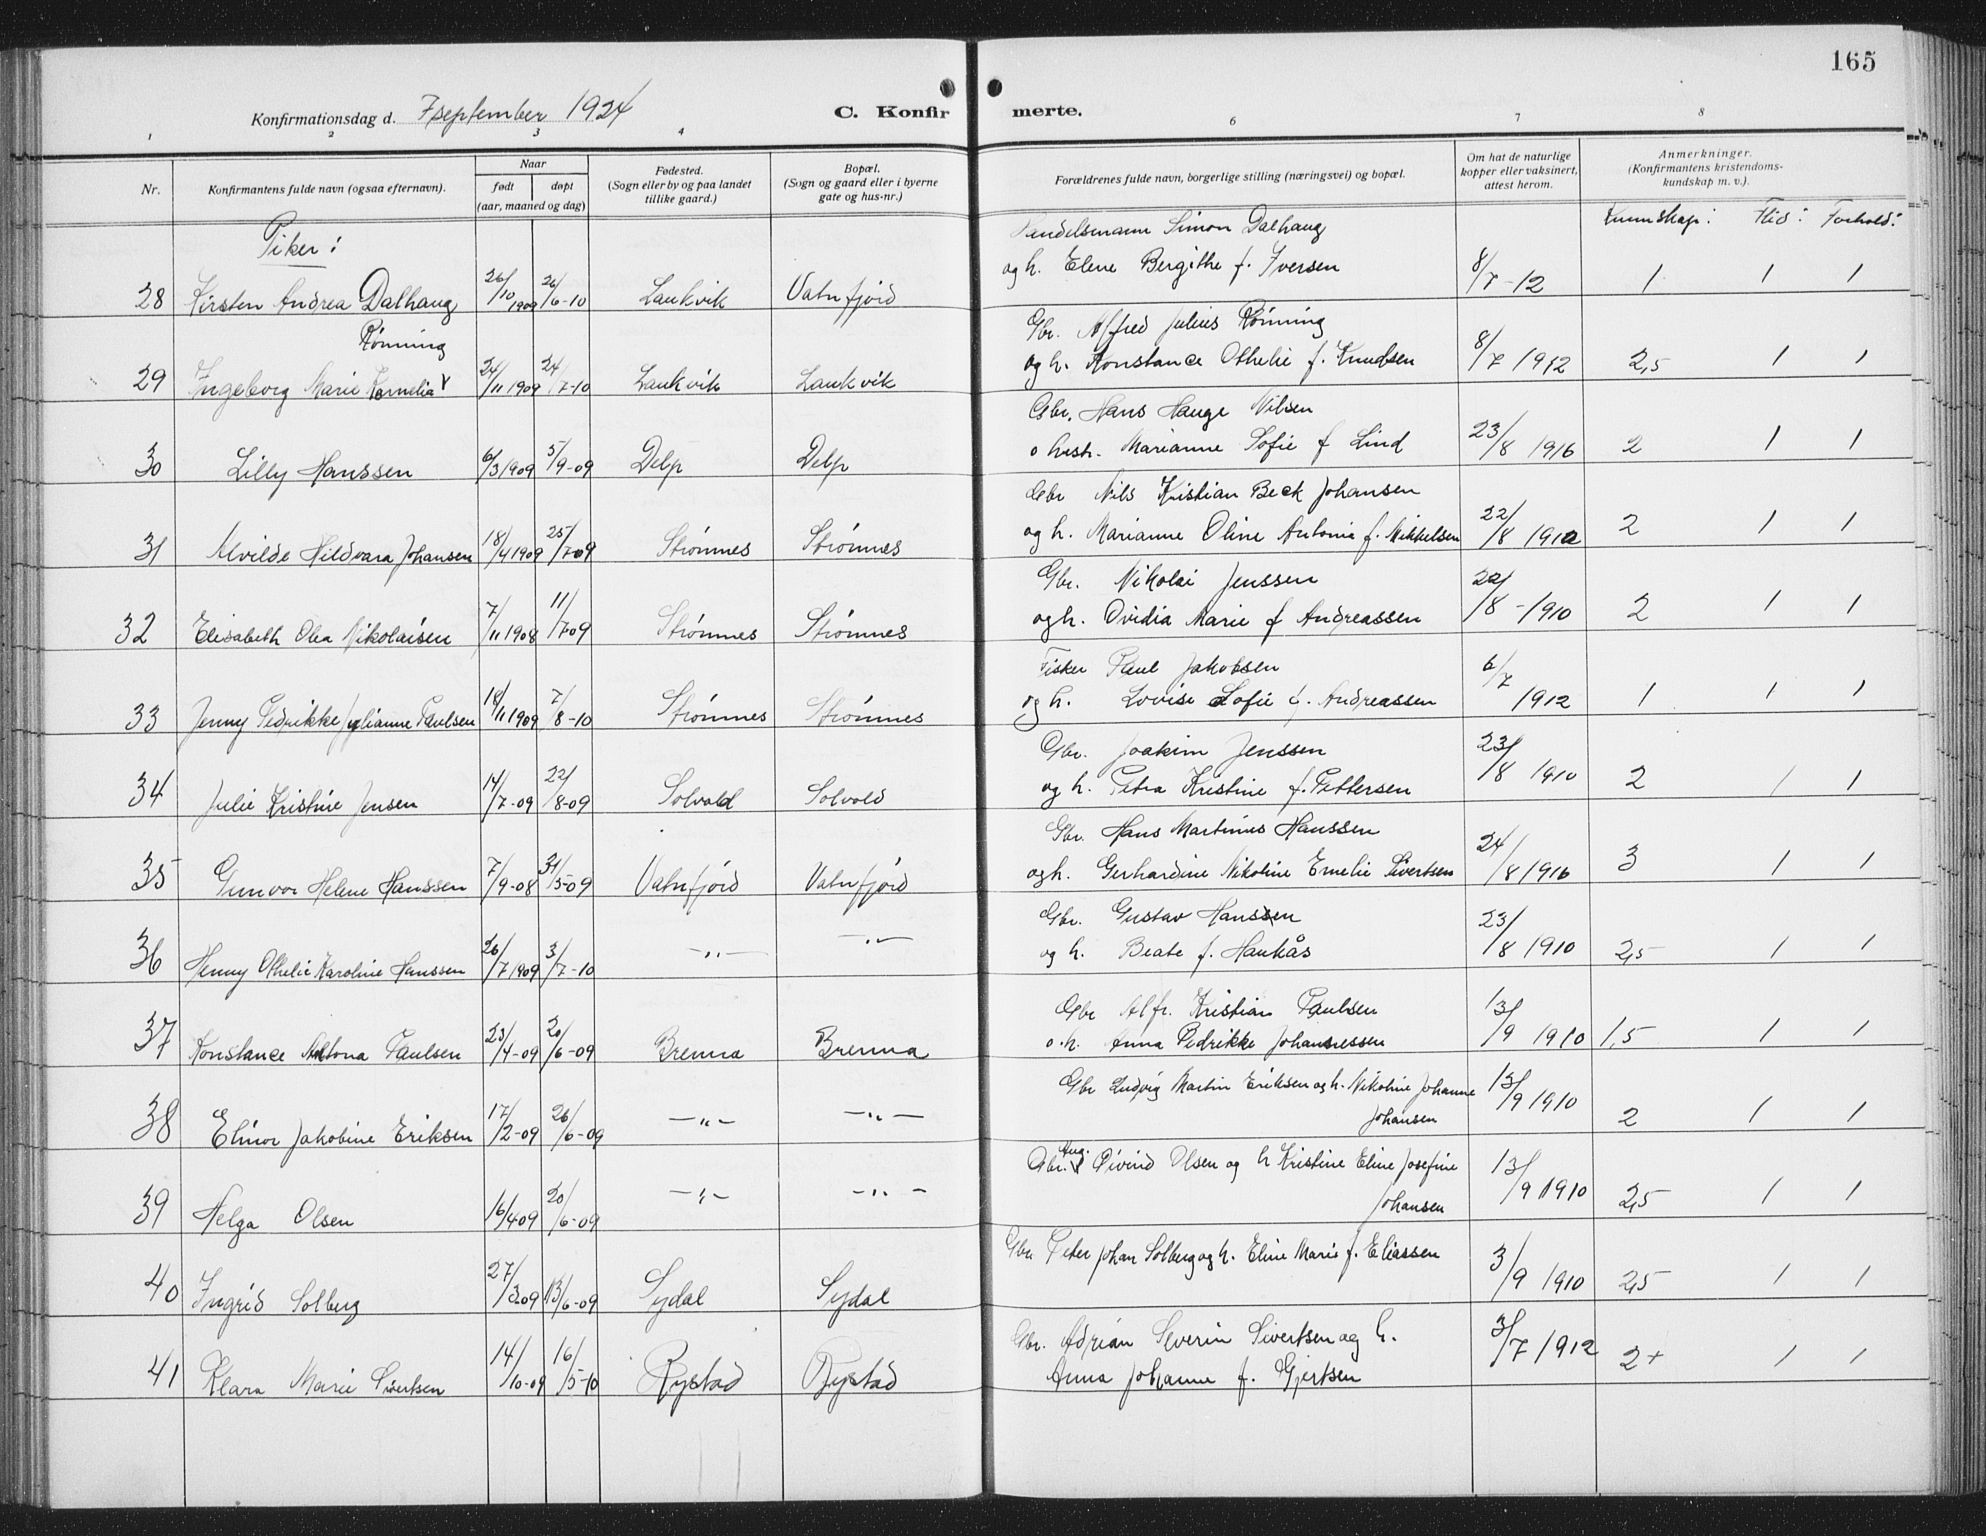 165
Konfirmationsdag d. 7 september 1924
C. Konfirmerte.
1 2 3 4 6 7 8
Nr. Konfirmantens fulde navn (ogsaa efternavn). Naar født døpt (aar, maaned og dag) Fødested. (Sogn eller by og paa landet tillike gaard.) Bopæl. (Sogn og gaard eller i byerne gate og hus-nr.) Forældrenes fulde navn, borgerlige stilling (næringsvei) og bopæl. Om hat de naturlige kopper eller vaksinert, attest herom. Anmerkninger. (Konfirmantens kristendomskundskap m. v.).
Kunnskap: Flid: Forhold:
Piker:
Handelsmann Simon Dalhaug
28 Kirsten Andrea Dalhaug 26/10 1909 26/6-10 Laukvik Vatnfjord og h. Elene Bergithe f. Iversen 8/7-12 1 1 1
Rønning Gbr. Alfred Julius Rønning
29 Ingeborg Marie Kornelia 24/11 1909 24/7-10 Laukvik Laukvik og h. Konstance Othelie f. Knudsen 8/7 1912 2,5 1 1
Gbr. Hans Hauge Nilsen
30 Lilly Hanssen 6/3 1909 5/9-09 Delp Delp o hustr. Marianne Sofie f Lind 23/8 1916 2 1 1
Gbr Nils Kristian Beck Johansen
31 Alvilde Hildvara Johansen 18/4 1909 25/7-09 Strømnes Strømnes og h. Marianne Oline Antonie f. Mikkelsen 22/8 1910 2 1 1
Gbr. Nikolai Jenssen
32 Elisabeth Olea Nikolaisen 7/11 1908 11/7-09 Strømnes Strømnes og h. Ovidia Marie f Andreassen 22/8-1910 2 1 1
Fisker Paul Jakobsen
33 Jenny Pedrikke Julianne Paulsen 18/11 1909 7/8-10 Strømnes Strømnes og h. Lovise Sofie f. Andreassen 6/7 1912 1 1 1
Gbr. Joakim Jenssen
34 Julie Kristine Jensen 14/7-09 22/8-09 Solvold Solvold og h. Petra Kristine f. Pettersen 23/8 1910 2 1 1
Gbr. Hans Martinus Hanssen
35 Gunvor Helene Hanssen 7/9-08 31/5-09 Vatnfjord Vatnfjord og h. Gerhardine Nikoline Emelie Sivertsen 24/8 1916 3 1 1
Gbr. Gustav Hanssen
36 Henny Othelie Karoline Hanssen 26/7 1909 3/7-10 -"- -"- og h. Beate f. Haukås 23/8 1910 2,5 1 1
Gbr Alfr. Kristian Paulsen
37 Konstance Antona Paulsen 23/4-09 20/6-09 Brenna Brenna o.h. Anna Pedrikke Johannessen 13/9 1910 1,5 1 1
Gbr Ludvig Martin Eriksen og h. Nikoline Johanne
38 Elinor Jakobine Eriksen 17/2-09 26/6-09 -"- -"- Johansen 13/9 1910 2 1 1
Gbr. Aug. Øivind Olsen og h Kristine Eline Josefine
39 Helga Olsen 16/4 09 20/6-09 -"- -"- Johansen 13/9 1910 2,5 1 1
Gbr Peter Johan Solberg og h. Eline Marie f. Eliassen
40 Ingrid Solberg 27/3 09 13/6-09 Sydal Sydal 3/9 1910 2,5 1 1
Gbr. Adrian Severin Sivertsen og h.
41 Klara Marie Sivertsen 14/10-09 16/5-10 Rystad Rystad Anna Johanne f. Gjertsen 3/7 1912 2+ 1 1